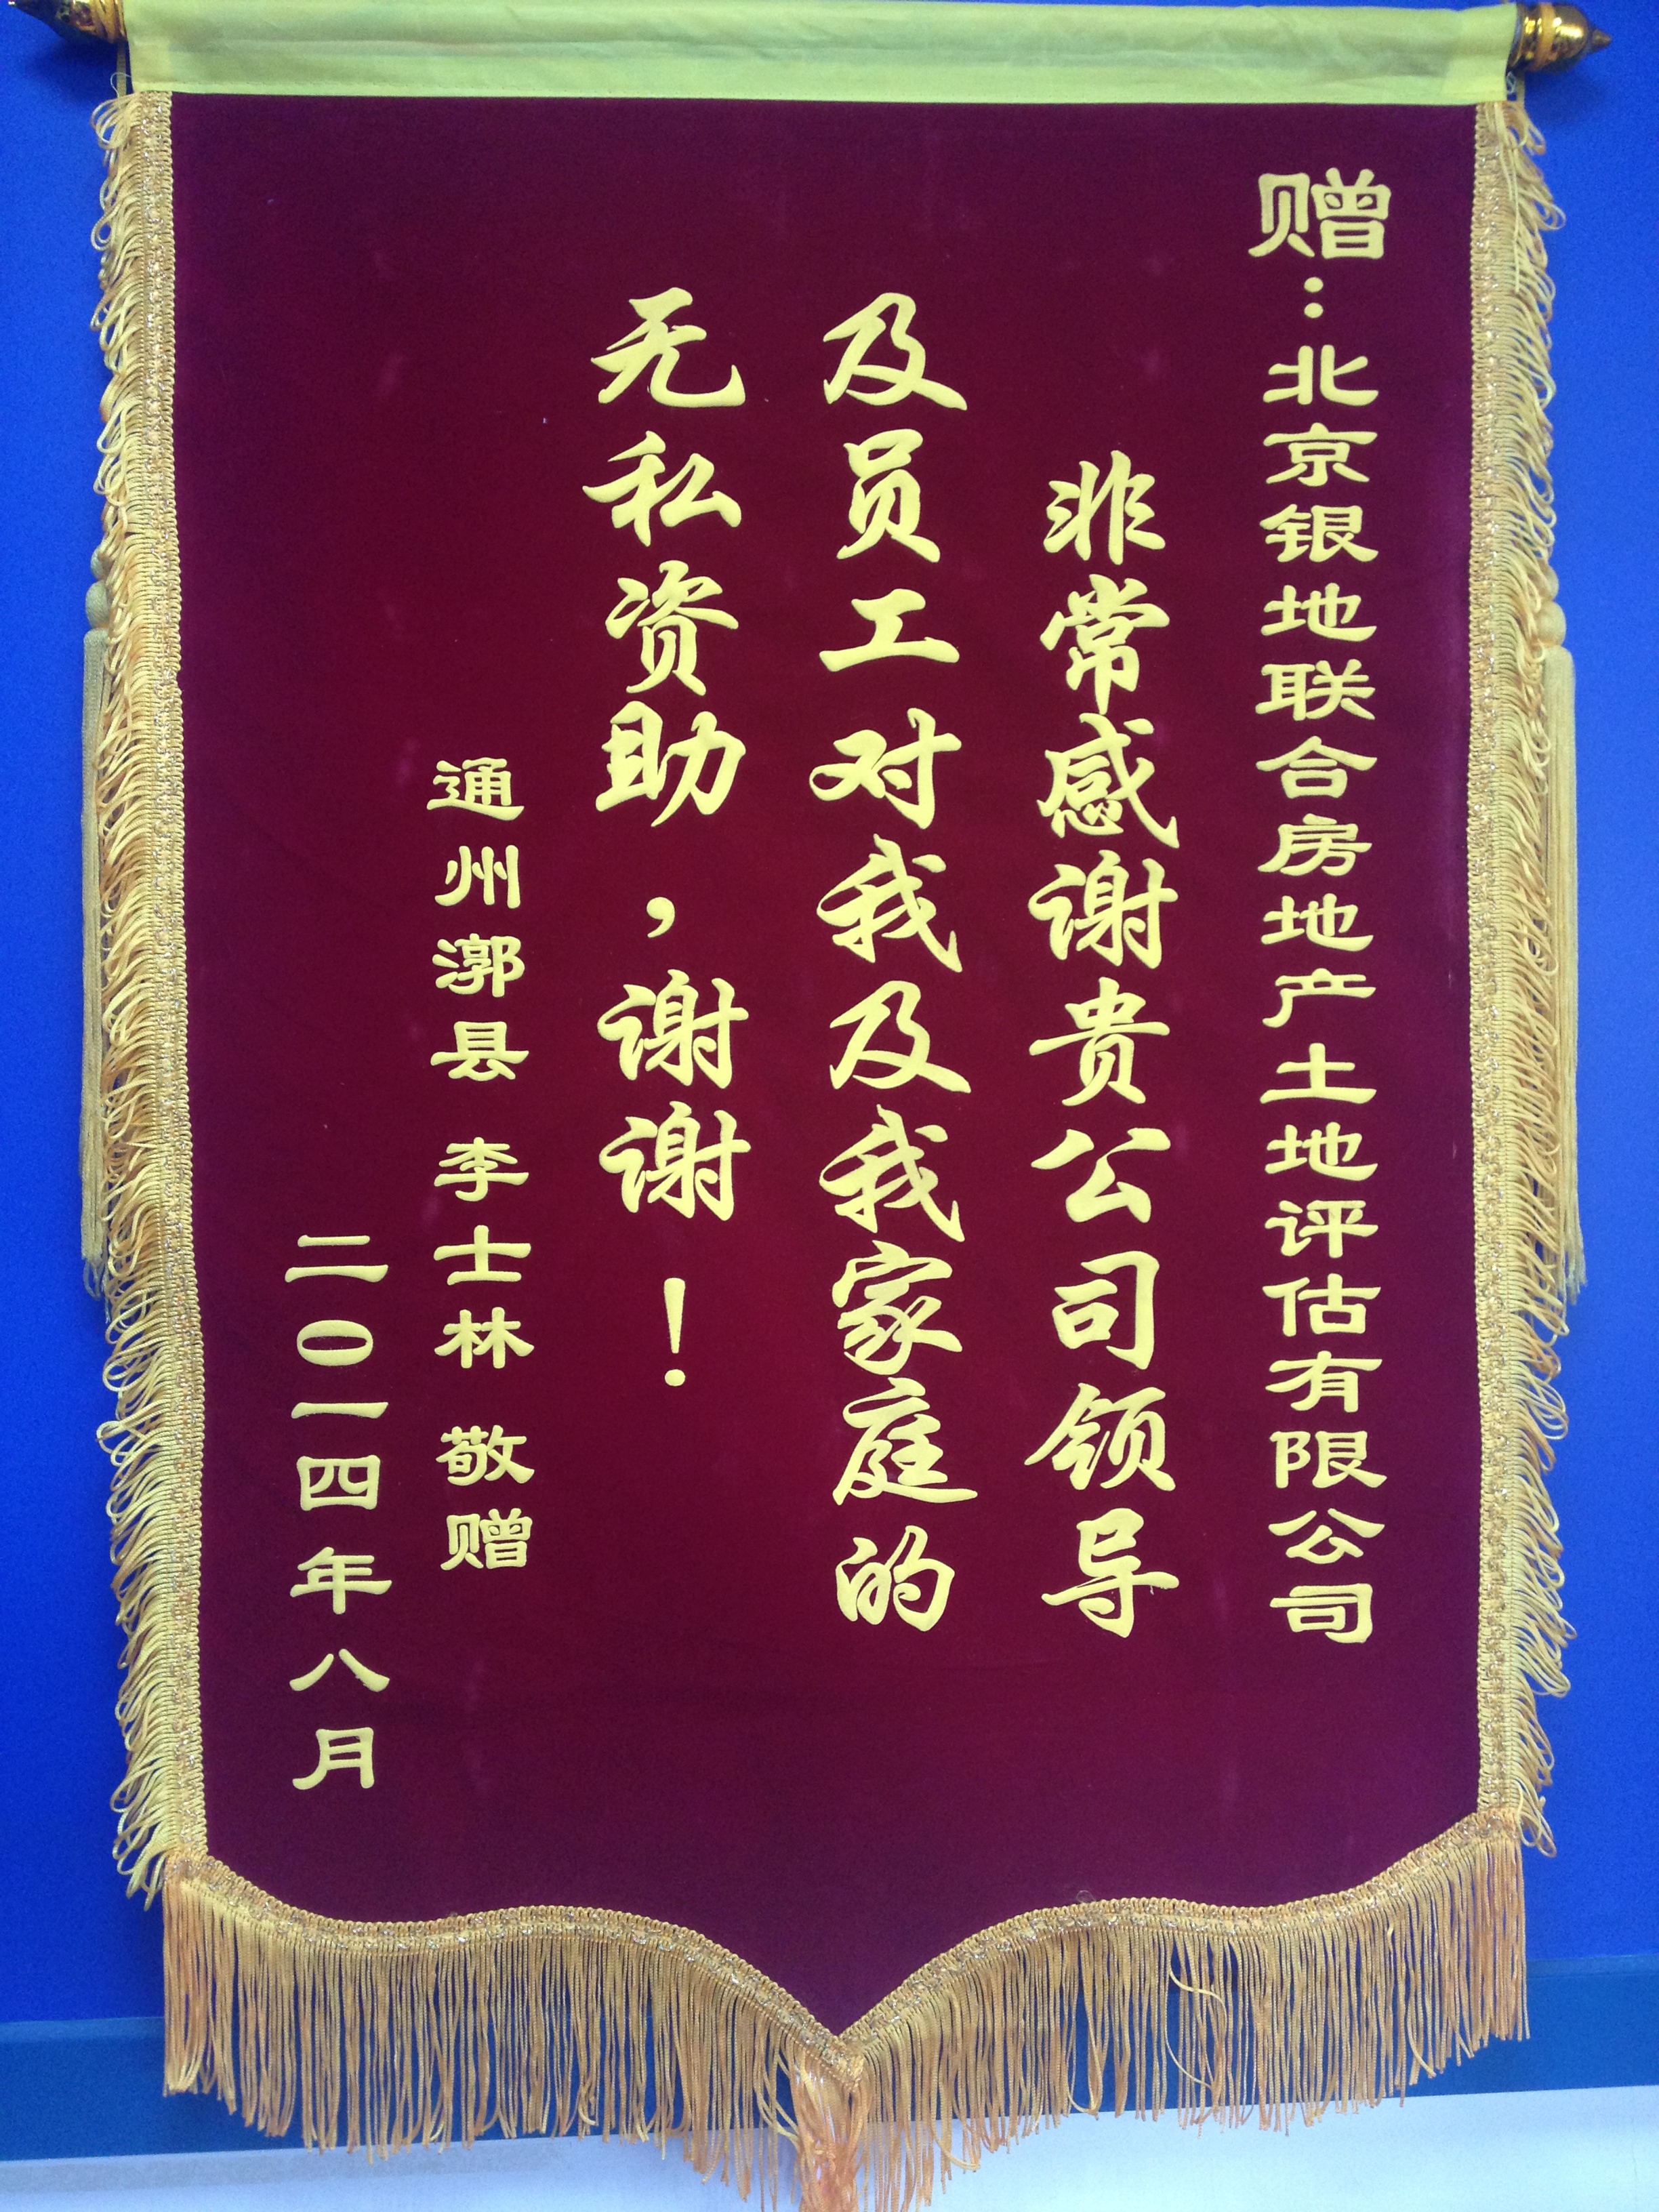 赠：北京银地联合房地产土地评估有限公司
非常感谢贵公司领导
及员工对我及我家庭的
无私资助，谢谢！
通州漷县 李士林 敬赠
二〇一四年八月